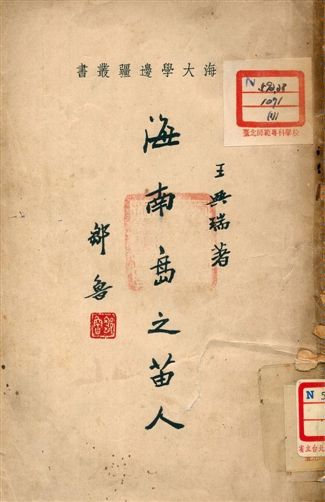 海大學邊疆叢書
王興瑞著
海南島之苗人
鄒魯
N 572.28
1091
臺北師範專科學校
N 5
省立台北